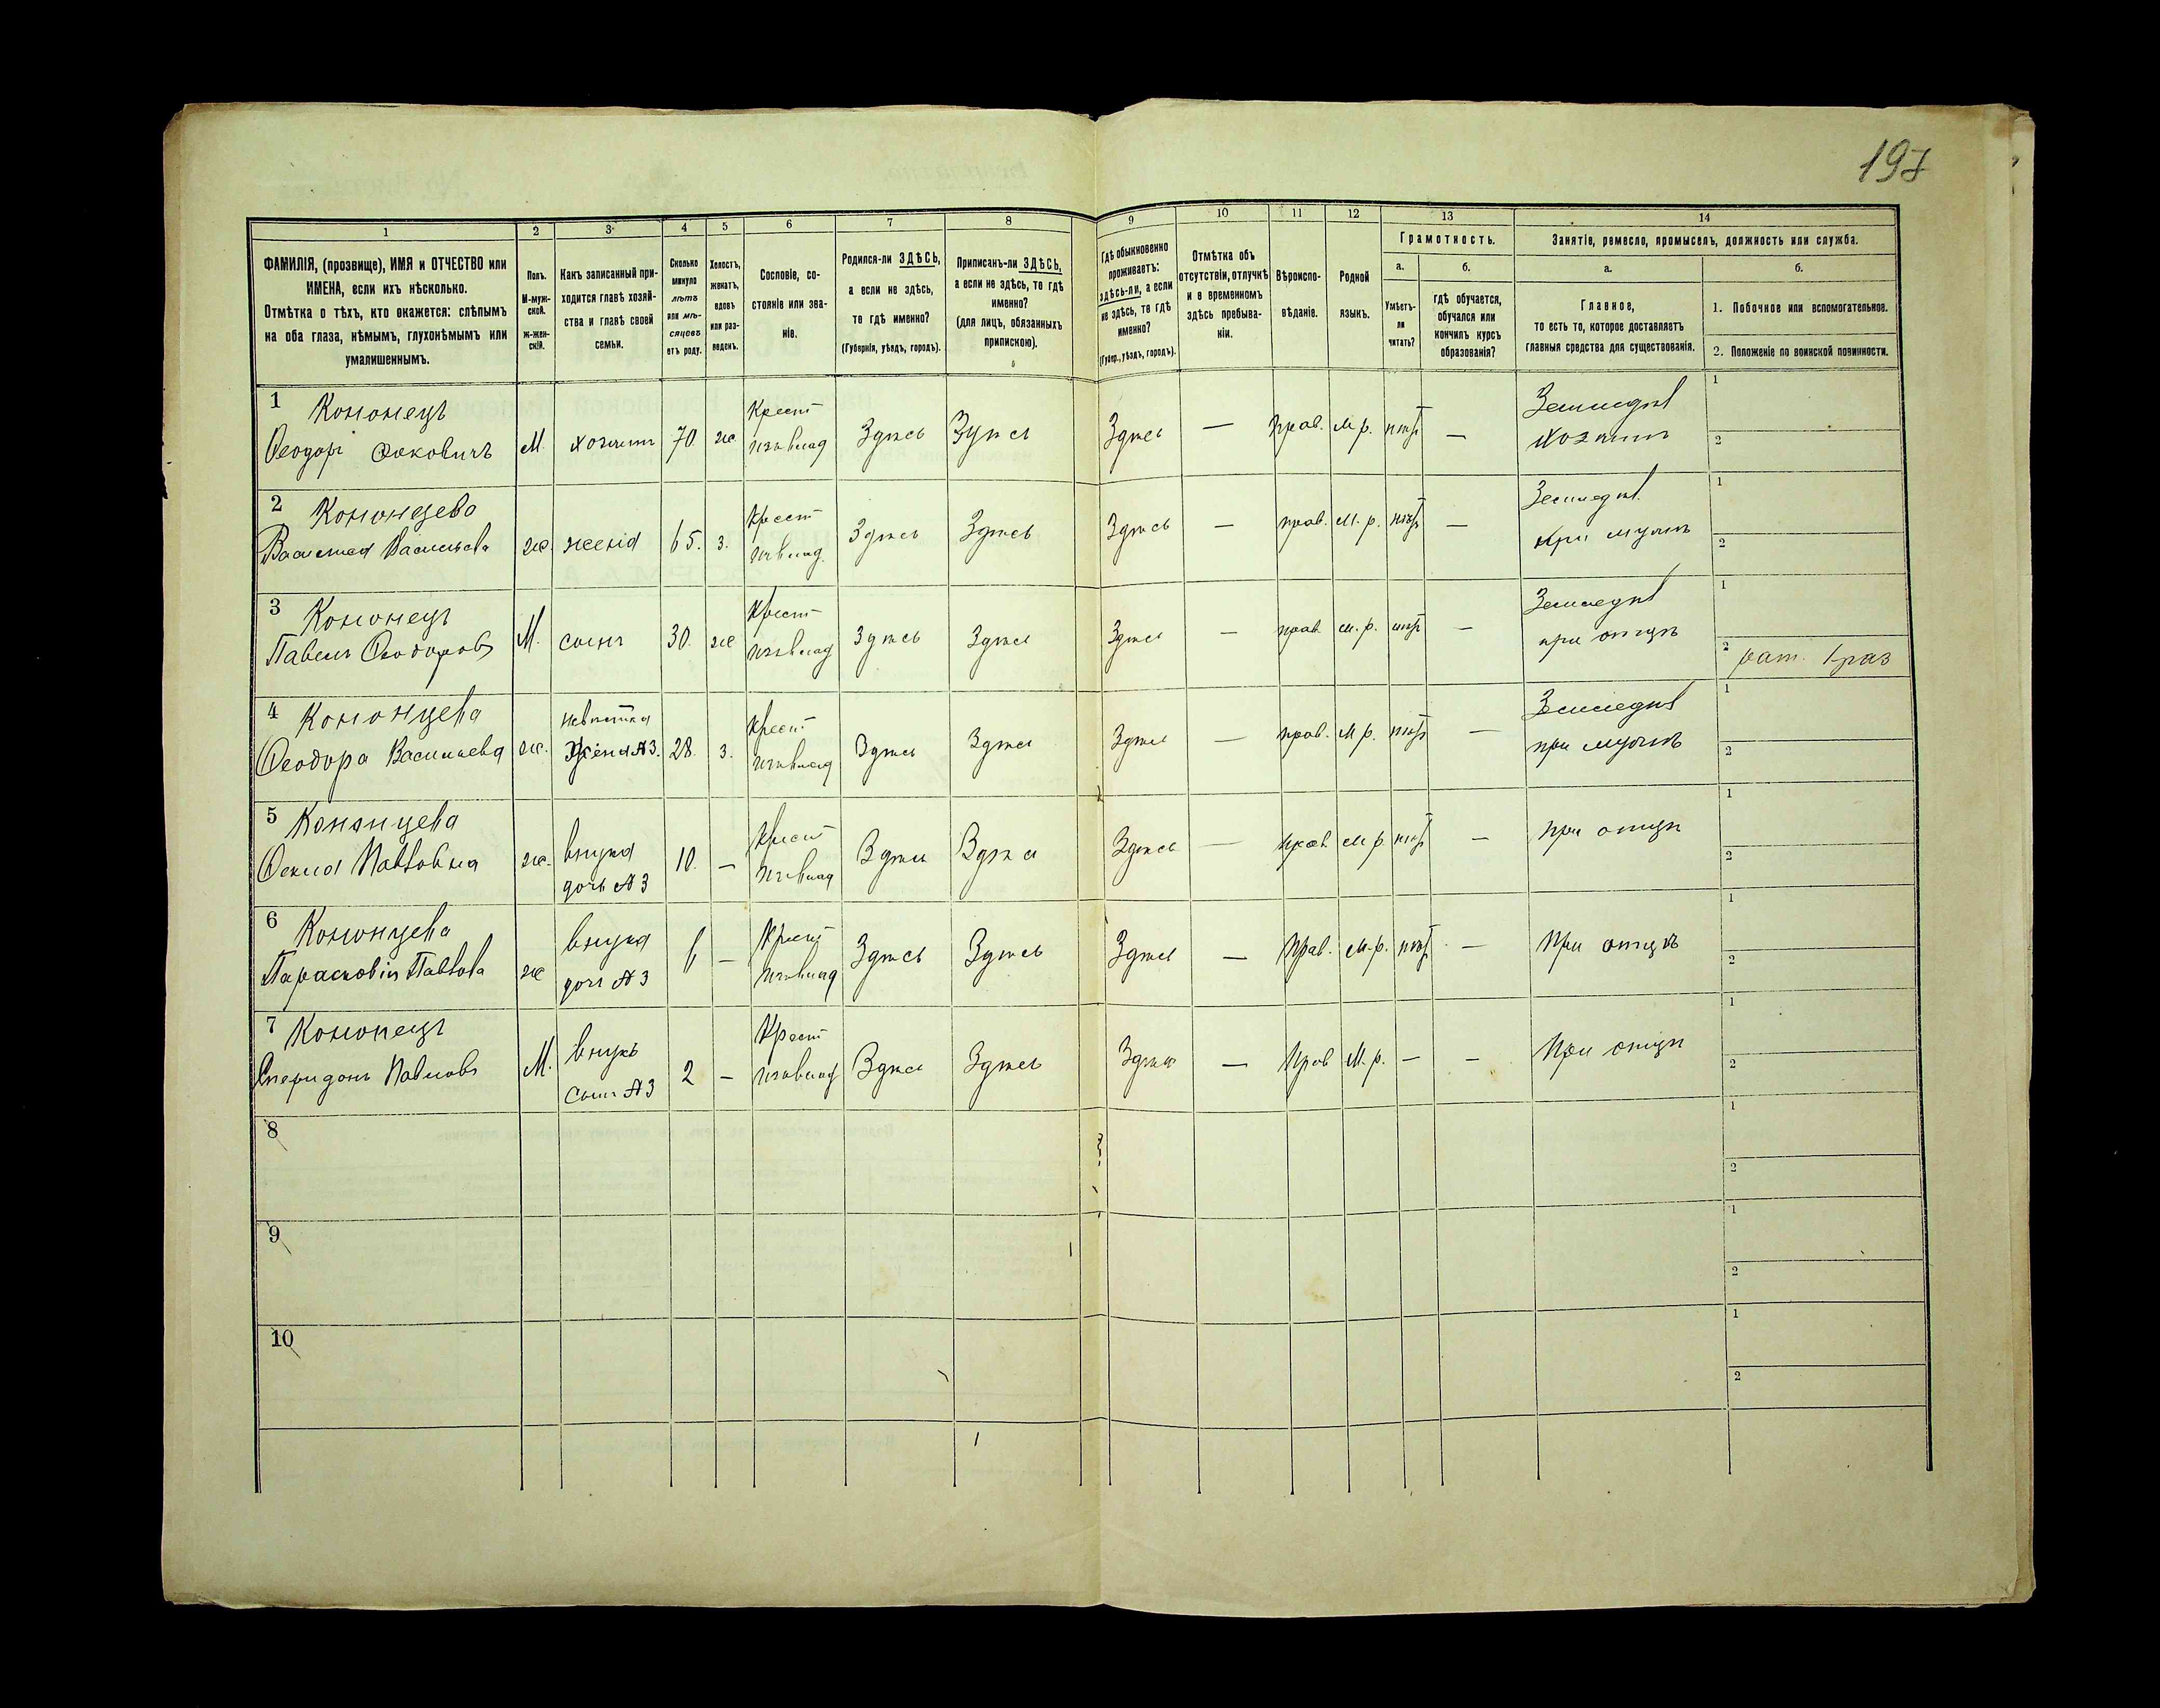 197
1 2 3 4 5 6 7 8 9 10 11 12 13 14
ФАМИЛІЯ, (прозвище), ИМЯ и ОТЧЕСТВО или
ИМЕНА, если ихъ нѣсколько.
Отмѣтка о тѣхъ, кто окажется: слѣпымъ
на оба глаза, нѣмымъ, глухонѣмымъ или
умалишеннымъ.
Полъ.
М-муж-
ской.
ж-жен-
скій.
Какъ записанный при-
ходится главѣ хозяй-
ства и главѣ своей
семьи.
Сколько
минуло
лѣтъ
или мѣ-
сяцевъ
отъ роду.
Холостъ,
женатъ,
вдовъ
или раз-
веденъ.
Сословіе, со-
стояніе или зва-
ніе.
Родился-ли ЗДѢСЬ,
а если не здѣсь,
то гдѣ именно?
(Губернія, уѣздъ, городъ).
Приписанъ-ли ЗДѢСЬ,
а если не здѣсь, то гдѣ
именно?
(для лицъ, обязанныхъ
припискою).
Гдѣ обыкновенно
проживаетъ:
здѣсь-ли, а если
не здѣсь, то гдѣ
именно?
(Губер., уѣздъ, городъ).
Отмѣтка объ
отсутствіи, отлучкѣ
и о временномъ
здѣсь пребыва-
ніи.
Вѣроиспо-
вѣданіе.
Родной
языкъ.
Грамотность.
а.
Умѣетъ-
ли
читать?
б.
гдѣ обучается,
обучался или
кончилъ курсъ
образованія?
Занятіе, ремесло, промыселъ, должность или служба.
а.
Главное,
то есть то, которое доставляетъ
главныя средства для существованія.
б.
1. Побочное или вспомогательное.
2. Положеніе по воинской повинности.
1 Кононецъ Крест Земледѣл 1
Ѳеодоръ Фоковичъ М. хозяинъ 70. ж Здѣсь Здѣсь Здѣсь — Прав. М.р. нѣтъ — Хозяинъ 2
2 Кононцева Крест Земледѣл. 1
Василиса Васильева ж. жена 65. з. Здѣсь Здѣсь Здѣсь — прав. М.р. нѣтъ — при мужѣ 2
3 Кононецъ Крест Земледѣл 1
Павелъ Ѳеодоровъ М. сынъ 30. ж Здѣсь Здѣсь Здѣсь — прав. м.р. нѣтъ — при отцѣ 2 рат. 1 раз
4 Кононцева невѣстка Крест Земледѣл 1
Ѳеодора Васильева ж. жена №3. 28. з. Здѣсь Здѣсь Здѣсь — прав. М.р. нѣтъ — при мужѣ 2
5 Кононцева внука Крест 1
Павловна ж. дочь №3 10. — Здѣсь Здѣсь Здѣсь — прав М.р. нѣтъ — при отцѣ 2
6 Кононцева внука Крест 1
Парасковія Павлова ж дочь №3 6 — Здѣсь Здѣсь Здѣсь — Прав. М.р. нѣтъ — При отцѣ 2
7 Кононецъ внукъ Крест 1
Спиридонъ Павловъ М. сынъ №3 2 — Здѣсь Здѣсь Здѣсь — Прав М.р. — — При отцѣ 2
8 1
2
9 1
2
10 1
2